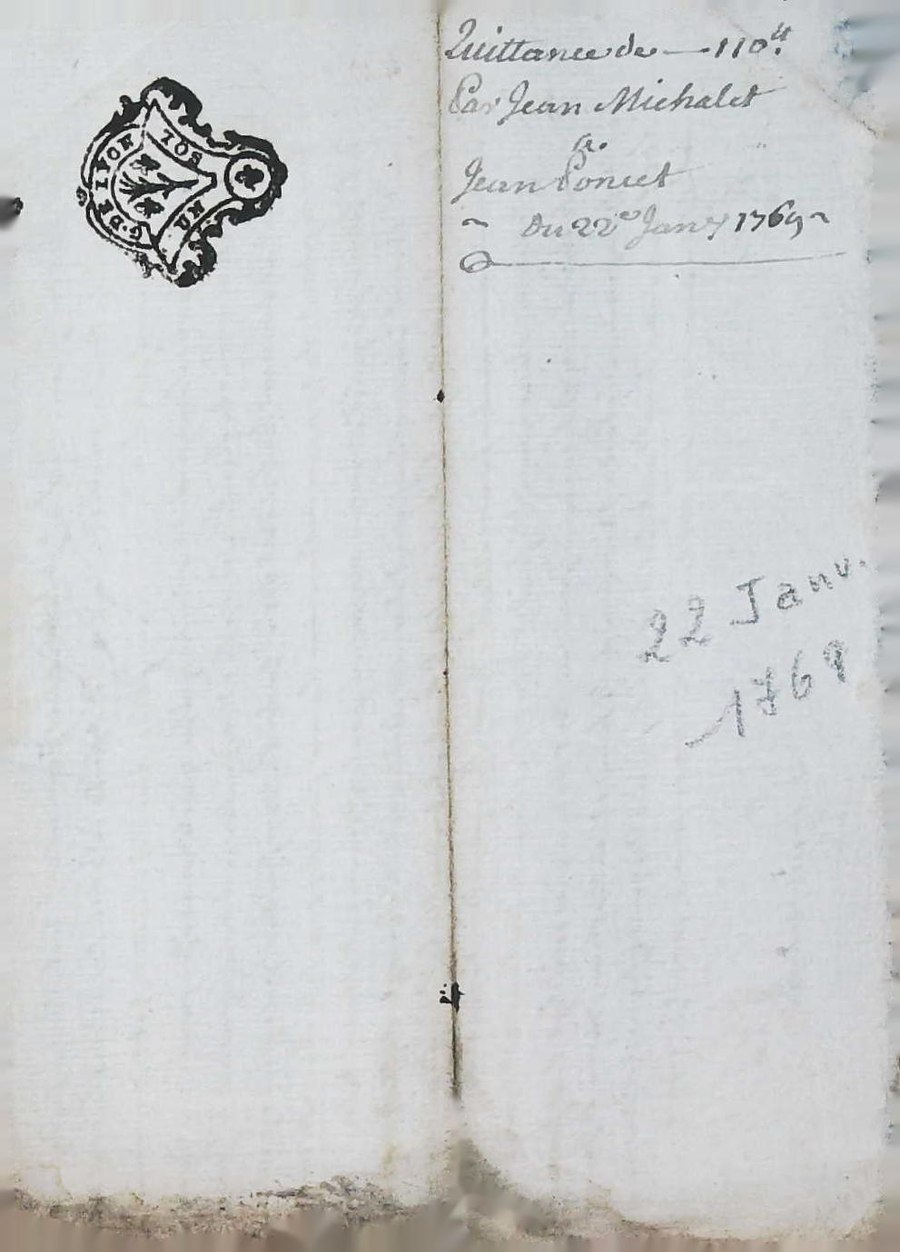 G. DE LYON
SOL
DEU
Quittance de — 110.ᵗᵗ
Par Jean Michalet
Jean Poncet
~ Du 22ᵉ Janv 1769 ~
22 Janv.
1769